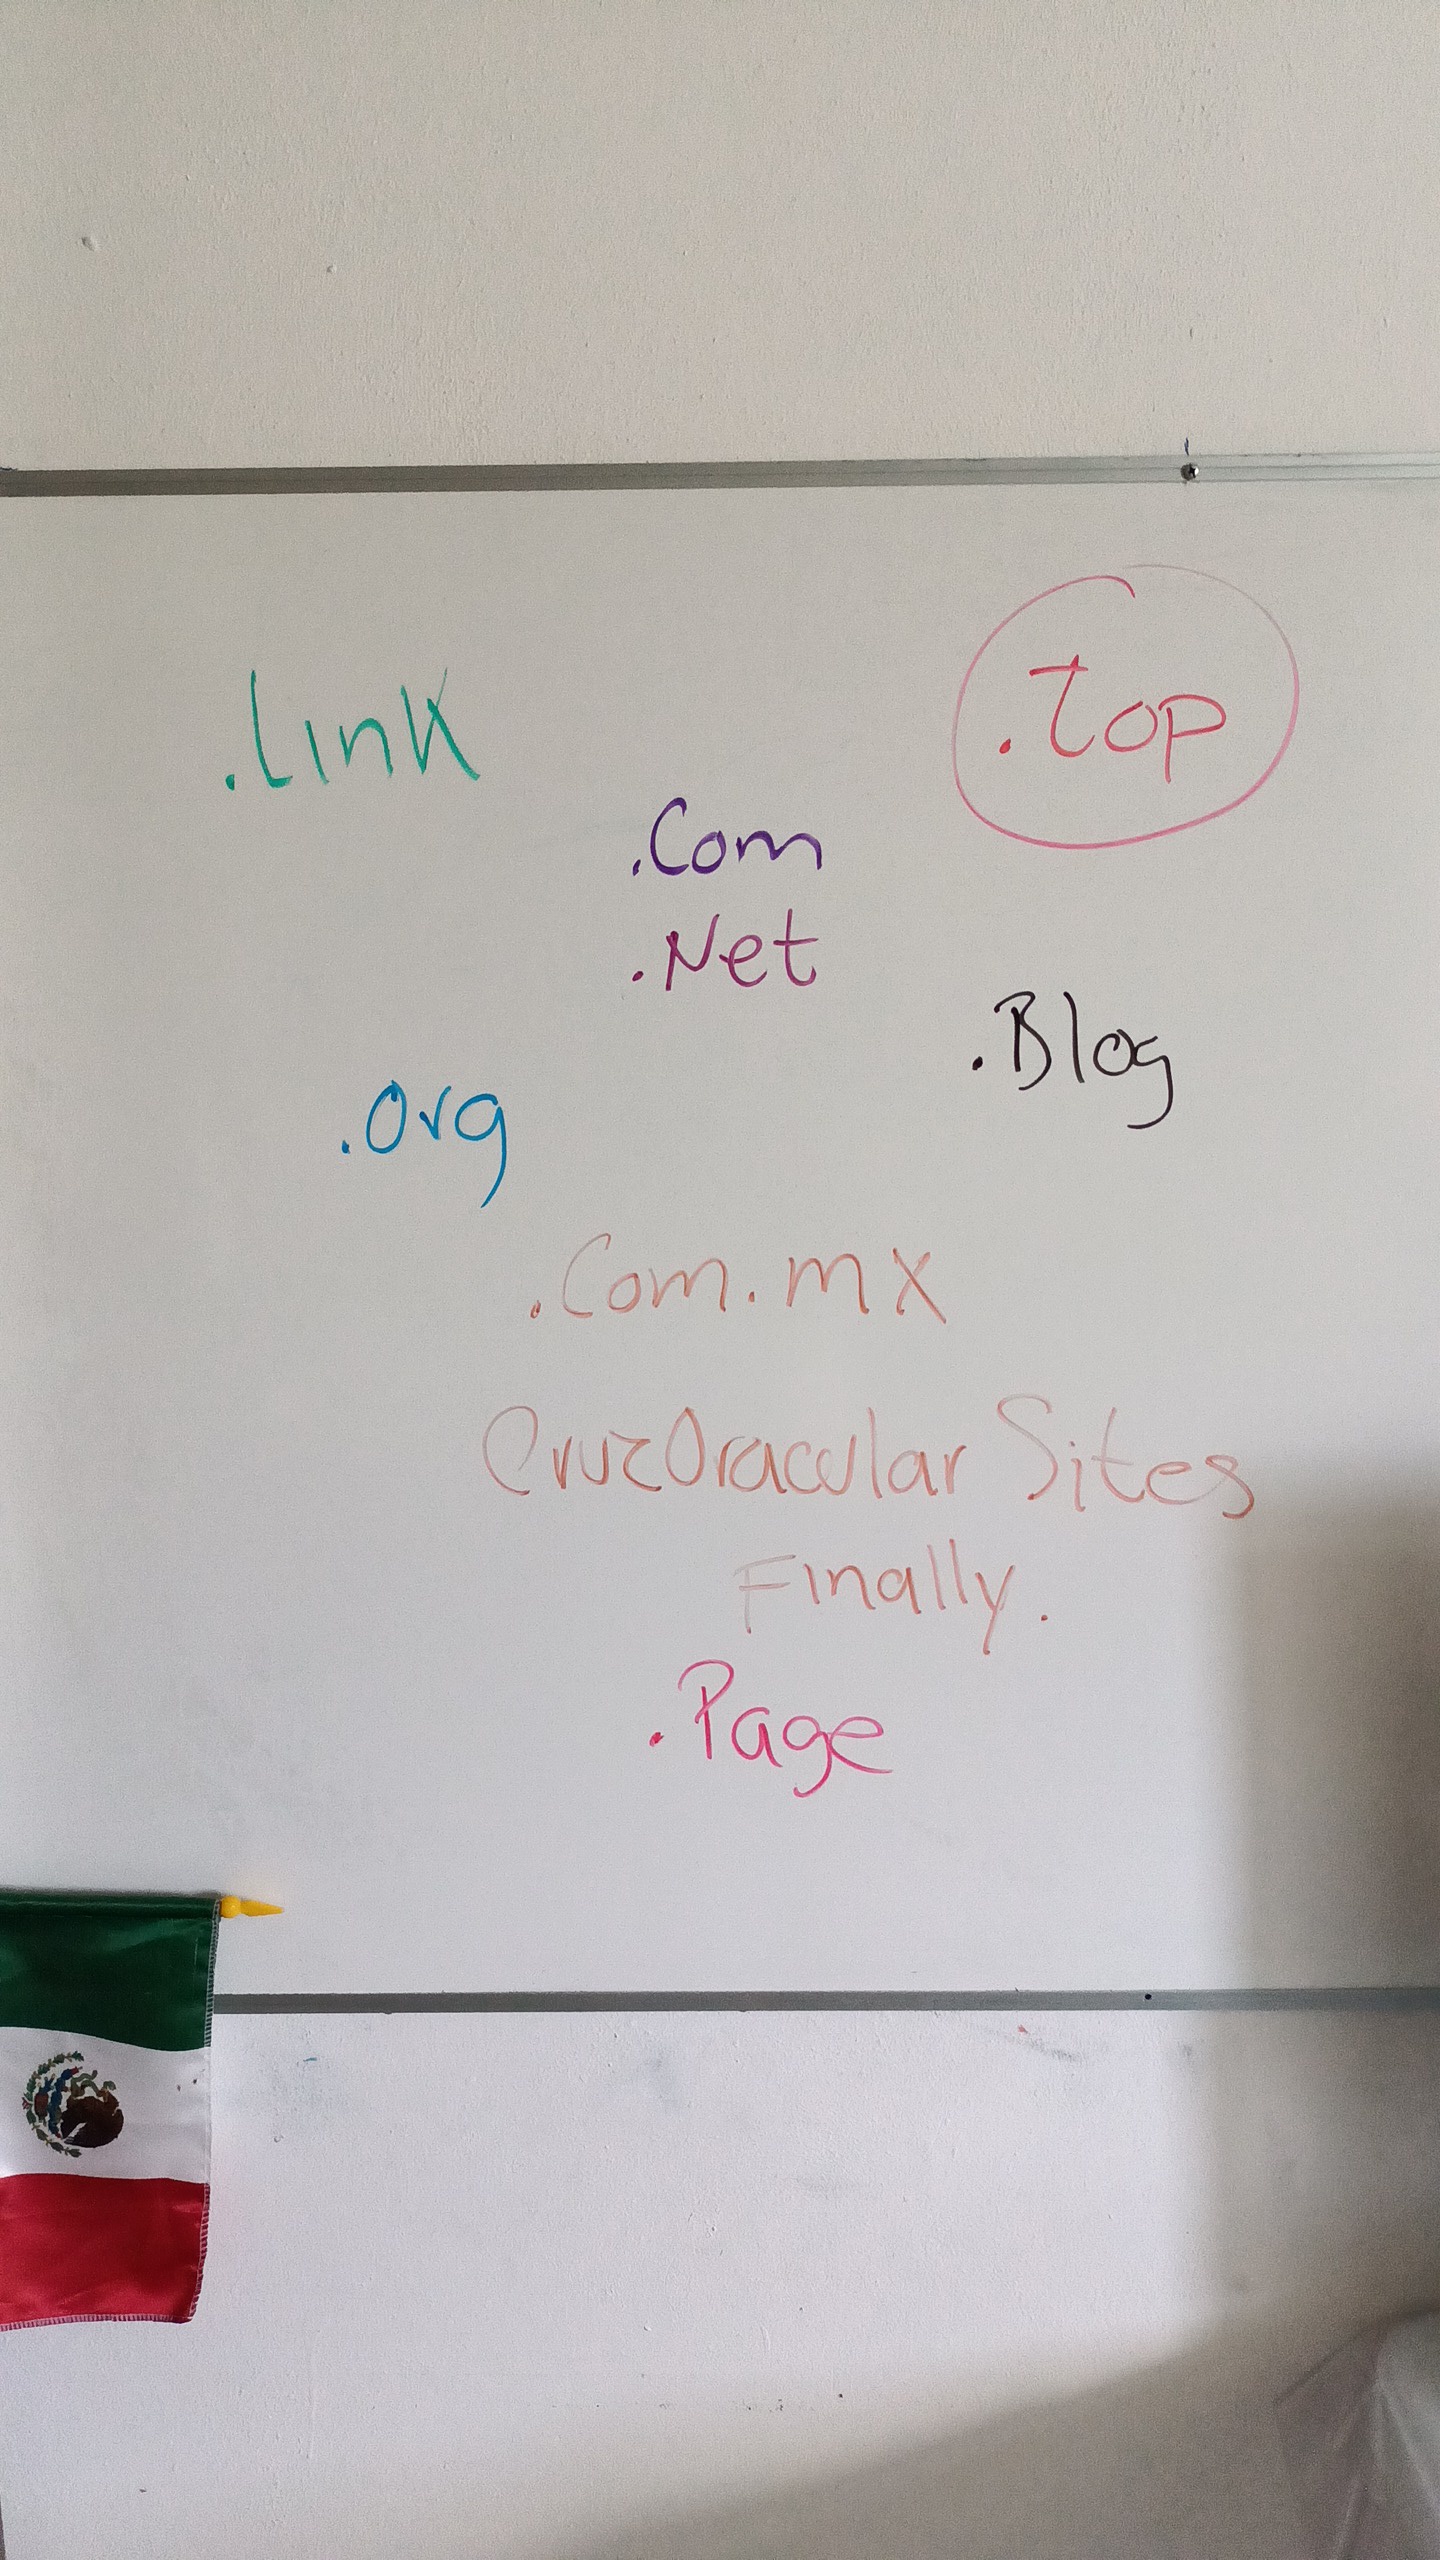 .link
.top
.Com
.Net
.Blog
.Org
.Com.mx
CruzOracular Sites
Finally.
.Page